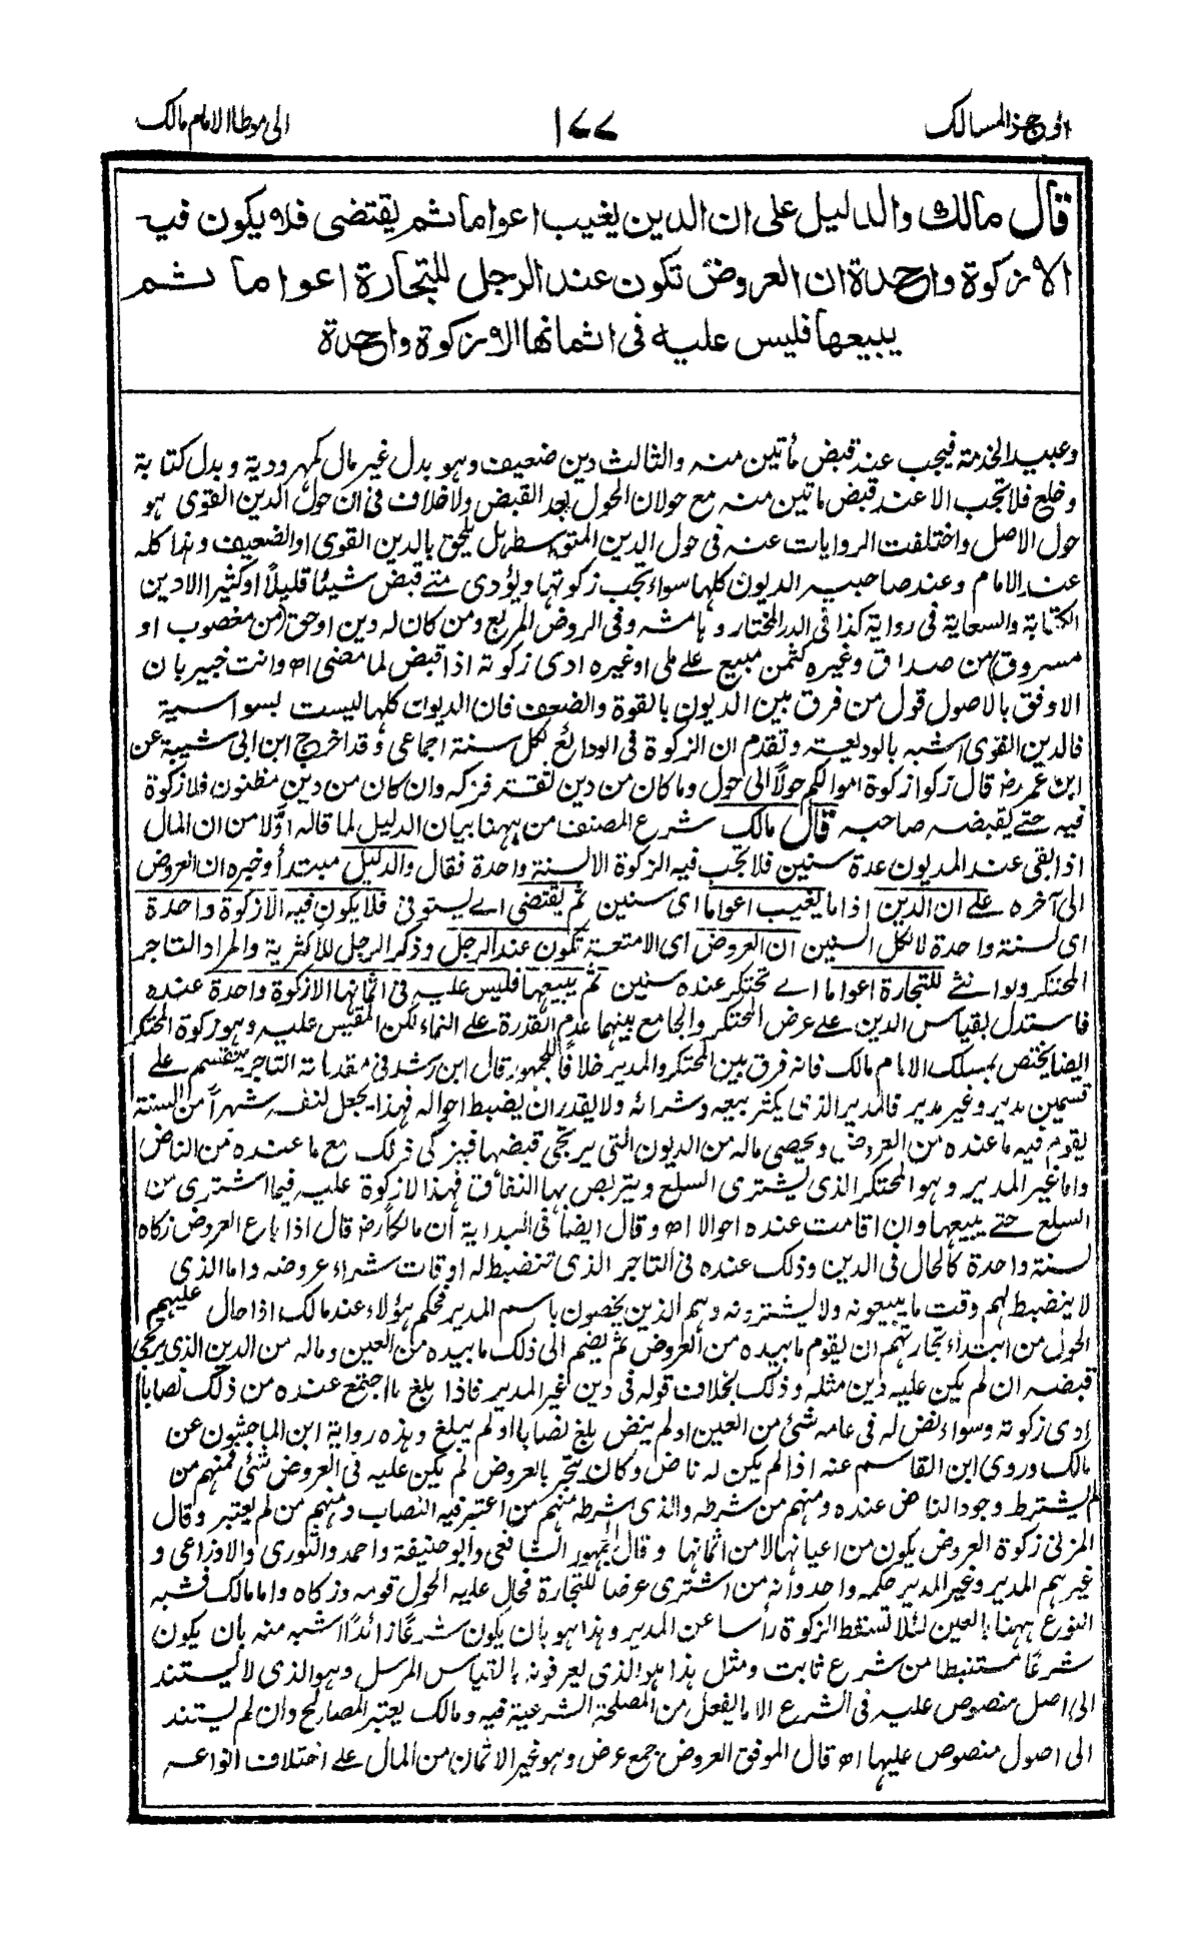 اوجز المسالك
١٧٧
الى موطا الامام مالك
قال مالك والدليل على ان الدين يغيب اعواما ثم يقتضى فلا يكون فيه
الا زكوة واحدة ان العروض تكون عند الرجل للتجارة اعواما ثم
يبيعها فليس عليه فى اثمانها الا زكوة واحدة
وعبيد الخدمة فيجب عند قبض مأتين منه والثالث دين ضعيف وهو بدل غير مال كمهر ودية وبدل كتابة
وخلع فلا تجب الا عند قبض مأتين منه مع حولان الحول بعد القبض ولا خلاف فى ان حول الدين القوى هو
حول الاصل واختلفت الروايات عنه فى حول الدين المتوسط هل يلحق بالدين القوى او الضعيف وهذا كله
عند الامام وعند صاحبيه الديون كلها سواء تجب زكوتها ويؤدى متى قبض شيئا قليلاً او كثيرا الا دين
الكتابة والسعاية فى رواية كذا فى الدر المختار وهامشه وفى الروض المربع ومن كان له دين او حق (من مغصوب او
مسروق) من صداق وغيره كثمن مبيع على ملى او غيره ادى زكوته اذا قبض لما مضى اه وانت خبير بان
الاوفق بالاصول قول من فرق بين الديون بالقوة والضعف فان الديون كلها ليست بسواسية
فالدين القوى اشبه بالوديعة وتقدم ان الزكوة فى الودائع لكل سنة اجماعى وقد اخرج ابن ابى شيبة عن
ابن عمر رض قال زكوا زكوة اموالكم حولاً الى حول وما كان من دين ثقة فزكه وان كان من دين مظنون فلا زكوة
فيه حتى يقبضه صاحبه قال مالك شرع المصنف من ههنا بيان الدليل لما قاله اولا من ان المال
اذا بقى عند المديون عدة سنين فلا تجب فيه الزكوة الا لسنة واحدة فقال والدليل مبتدأ وخبره ان العروض
الى آخره على ان الدين اذا ما يغيب اعواما اى سنين ثم يقتضى اى يستوفى فلا يكون فيه الا زكوة واحدة
اى لسنة واحدة لا لكل السنين ان العروض اى الامتعة تكون عند الرجل وذكر الرجل للاكثرية والمراد التاجر
المحتكر ولو انثى للتجارة اعواما اى تحتكر عنده سنين ثم يبيعها فليس عليه فى اثمانها الا زكوة واحدة عنده
فاستدل بقياس الدين على عرض المحتكر والجامع بينهما عدم القدرة على النماء لكن المقيس عليه وهو زكوة المحتكر
ايضا يختص بمسلك الامام مالك فانه فرق بين المحتكر والمدير خلافاً للجمهور قال ابن رشد فى مقدماته التاجر ينقسم على
قسمين مدير وغير مدير فالمدير الذى يكثر بيعه وشرائه ولا يقدر ان يضبط احواله فهذا يجعل لنفسه شهراً من السنة
يقوم فيه ما عنده من العروض ويحصى ماله من الديون التى يرتجى قبضها فيزكى ذلك مع ما عنده من الناض
واما غير المدير وهو المحتكر الذى يشترى السلع ويتربص بها النفاق فهذا لا زكوة عليه فيما اشترى من
السلع حتى يبيعها وان اقامت عنده احوالا اه وقال ايضا فى البداية ان مالكاً رض قال اذا باع العروض زكاه
لسنة واحدة كالحال فى الدين وذلك عنده فى التاجر الذى تنضبط له اوقات شراء عروضه واما الذى
لا ينضبط لهم وقت ما يبيعونه ولا يشترونه وهم الذين يخصون باسم المدير فحكم هؤلاء عند مالك اذا حال عليهم
الحول من ابتداء تجارتهم ان يقوم ما بيده من العروض ثم يضم الى ذلك ما بيده من العين وماله من الدين الذى يرتجى
قبضه ان لم يكن عليه دين مثله وذلك بخلاف قوله فى دين غير المدير فاذا بلغ ما اجتمع عنده من ذلك نصابا
ادى زكوته وسواء نض له فى عامه شئ من العين او لم ينض بلغ نصابا او لم يبلغ وهذه رواية ابن الماجشون عن
مالك وروى ابن القاسم عنه اذا لم يكن له ناض وكان يتجر بالعروض لم يكن عليه فى العروض شئ فمنهم من
لم يشترط وجود الناض عنده ومنهم من شرطه والذى شرطه منهم من اعتبر فيه النصاب ومنهم من لم يعتبر وقال
المزنى زكوة العروض يكون من اعيانها لا من اثمانها وقال الجمهور الشافعى وابو حنيفة واحمد والثورى والاوزاعى و
غيرهم المدير وغير المدير حكمه واحد وانه من اشترى عرضا للتجارة فحال عليه الحول قومه وزكاه واما مالك فشبه
النوع ههنا بالعين لئلا تسقط الزكوة رأسا عن المدير وهذا هو بان يكون شرعاً زائداً اشبه منه بان يكون
شرعاً مستنبطا من شرع ثابت ومثل هذا هو الذى يعرفونه بالقياس المرسل وهو الذى لا يستند
الى اصل منصوص عليه فى الشرع الا ما يفعل من المصلحة الشرعية فيه ومالك يعتبر المصالح وان لم يستند
الى اصول منصوص عليها اه قال الموفق العروض جمع عرض وهو غير الاثمان من المال على اختلاف انواعه